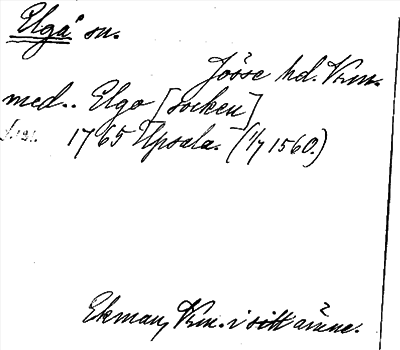 Elgå sn.
Jösse hd. Vrm.
med. Elgo [socken]
1765 Upsala. (1/7 1560.)
Ekman, Vrm. i sitt ämne.